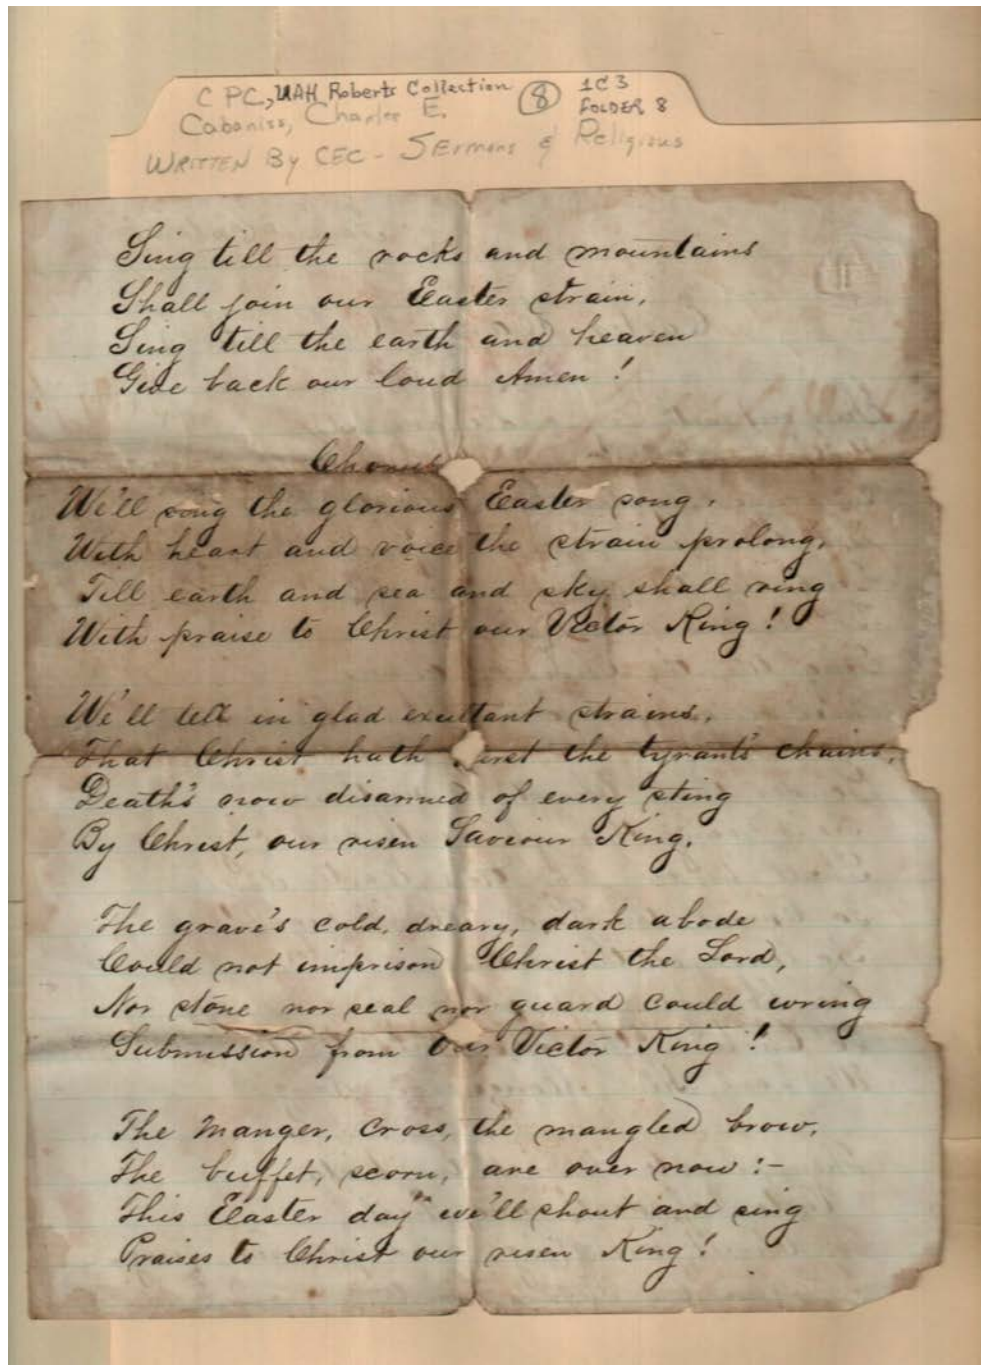 C PC, UAH Roberts Collection (8) 1C3
Cabaniss, Charles E. FOLDER 8
WRITTEN By CEC - SErmons & Religious
(11)
Sing till the rocks and mountains
Shall join our Easter strain,
Sing till the earth and heaven
Give back our loud Amen!
Chorus
We'll song the glorious Easter song,
With heart and voice the strain prolong,
Till earth and sea and sky shall ring
With praise to Christ our Victor King!
We'll tell in glad exultant strains,
That Christ hath the tyrant's chains,
Death's now disarmed of every sting
By Christ, our risen Saviour King.
The grave's cold, dreary, dark abode
Could not imprison Christ the Lord,
Nor stone nor seal nor guard could wring
Submission from our Victor King!
The Manger, Cross, the mangled brow,
The buffet, scorn, are over now:-
This Easter day we'll shout and sing
Praises to Christ our risen King!